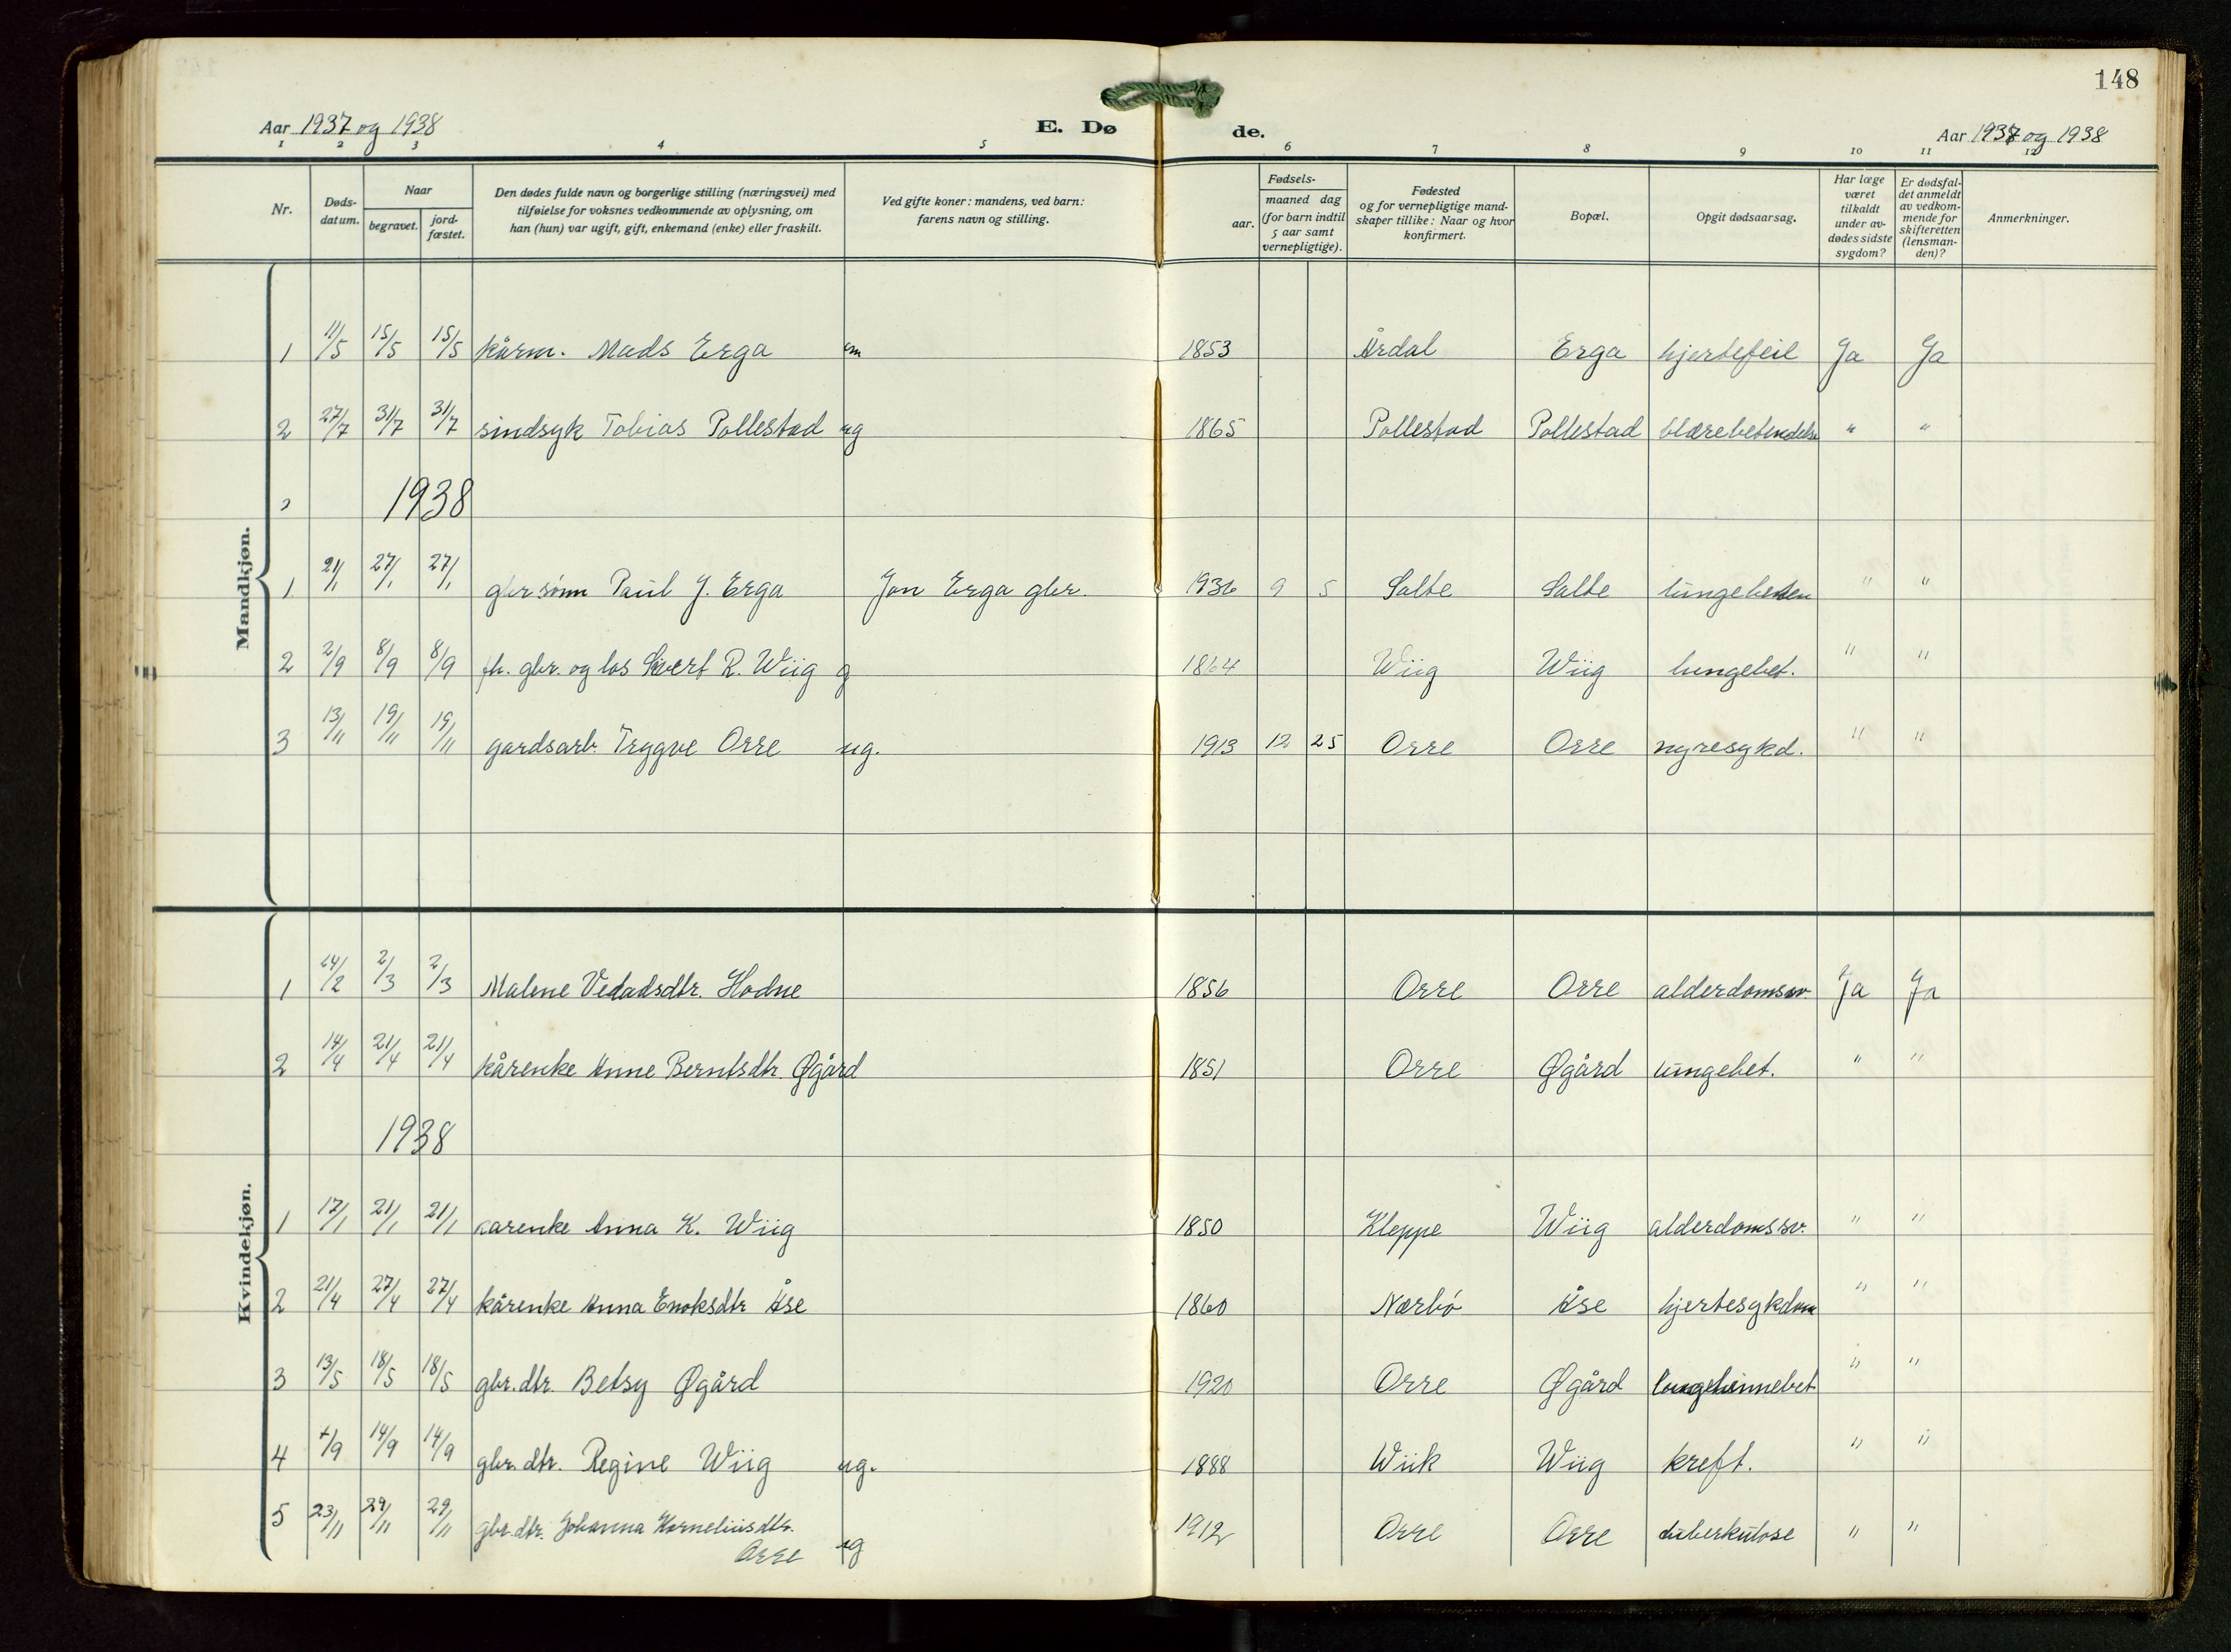 148
Aar 1937 og 1938
E. Dø
de.
Aar 1937 og 1938
1 2 3 4 5 6 7 8 9 10 11 12
Nr.
Døds-
datum.
Naar
begravet.
jord-
fæstet.
Den dødes fulde navn og borgerlige stilling (næringsvei) med
tilføielse for voksnes vedkommende av oplysning, om
han (hun) var ugift, gift, enkemand (enke) eller fraskilt.
Ved gifte koner: mandens, ved barn:
farens navn og stilling.
Fødsels-
aar.
maaned dag
(for barn indtil
5 aar samt
vernepligtige).
Fødested
og for vernepligtige mand-
skaper tillike: Naar og hvor
konfirmert.
Bopæl.
Opgit dødsaarsag.
Har læge
været
tilkaldt
under av-
dødes sidste
sygdom?
Er dødsfal-
det anmeldt
av vedkom-
mende for
skifteretten
(lensman-
den)?
Anmerkninger.
Mandkjøn.
1 11/5 15/5 15/5 kårm. Mads Erga em 1853 Årdal Erga hjertefeil Ja Ja
2 27/7 31/7 31/7 sindsyk Tobias Pollestad ug 1865 Pollestad Pollestad blærebetendelse " "
1938
1 21/1 27/1 27/1 gbr sønn Paul J. Erga Jon Erga gbr. 1936 9 5 Salte Salte lungebeten " "
2 2/9 8/9 8/9 fh. gbr. og los Sivert R. Wiig g 1864 Wiig Wiig lungebet. " "
3 13/11 19/11 19/11 gardsarb. Trygve Orre ug. 1913 12 25 Orre Orre nyresykd. " "
Kvindekjøn.
1 24/2 2/3 2/3 Malene Vedadsdtr. Hodne 1856 Orre Orre alderdomssv. Ja Ja
2 14/4 21/4 21/4 kårenke Anne Berntsdtr. Øgård 1851 Orre Øgård lungebet. " "
1938
1 17/1 21/1 21/1 karenke Anna K. Wiig 1850 Kleppe Wiig alderdomssv. " "
2 21/4 27/4 27/4 kårenke Anna Enoksdtr Åse 1860 Nærbö Åse hjertesykdom " "
3 13/5 18/5 18/5 gbr. dtr. Betsy Øgård 1920 Orre Øgård lungehinnebet " "
4 4/9 14/9 14/9 gbr. dtr. Regine Wiig ug. 1888 Wiik Wiig kreft. " "
5 23/11 29/11 29/11 gbr. dtr. Johanna Korneliusdtr. 1912 Orre Orre tuberkulose " "
Orre ug